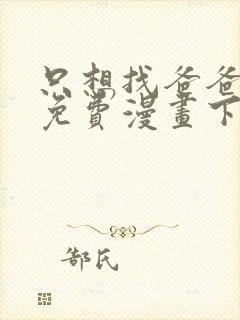 只想找爸爸
免費漫畫下
郜氏